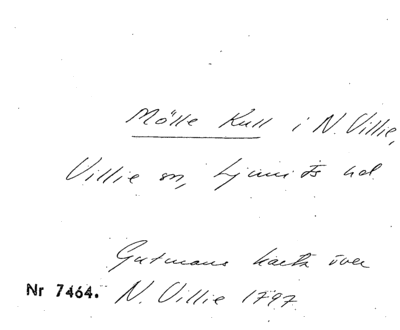 Mölle Kull i N. Villie,
Villie sn, Ljunits hd
Gutmans karta över
Nr 7464. N. Villie 1797